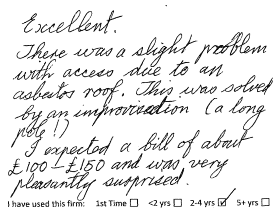 Excellent.
There was a slight problem
with access due to an
asbestos roof. This was solved
by an improvisation (a long
pole!)
I expected a bill of about
£100-£150 and was very
pleasantly surprised.
I have used this firm: 1st Time ☐ <2 yrs ☐ 2-4 yrs ☑ 5+ yrs ☐